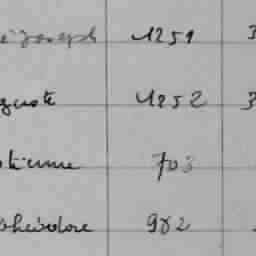 é Joseph 1251 3
guste 1252 3
tienne 703
Théodore 982